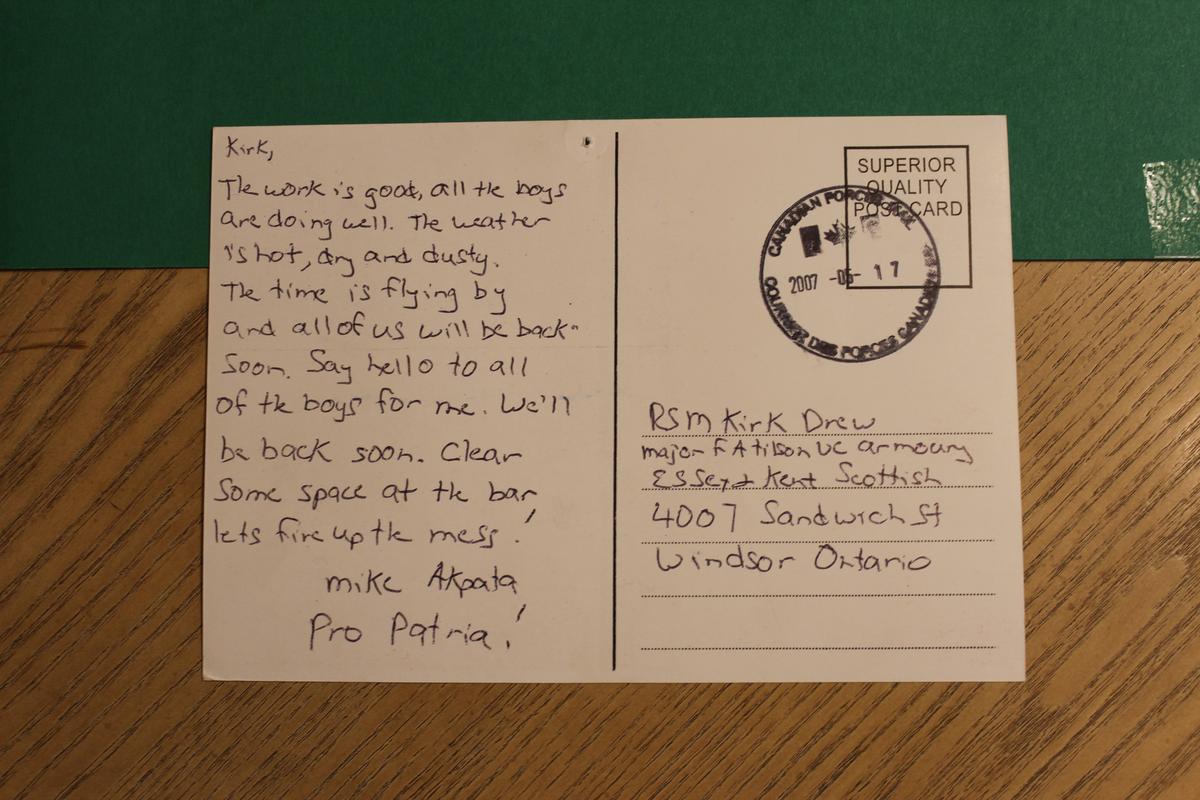 Kirk,
The work is good, all the boys
are doing well. The weather
is hot, dry and dusty.
The time is flying by
and all of us will be back
soon. Say hello to all
of the boys for me. We'll
be back soon. Clear
some space at the bar
lets fire up the mess!
mike Akpata
Pro Patria!
SUPERIOR
QUALITY
POST CARD
CANADIAN FORCES MAIL
2007 -05- 17
COURRIER DES FORCES CANADIENNES
RSM Kirk Drew
major F A tilson VC armoury
ESSex & Kent Scottish
4007 Sandwich St
Windsor Ontario